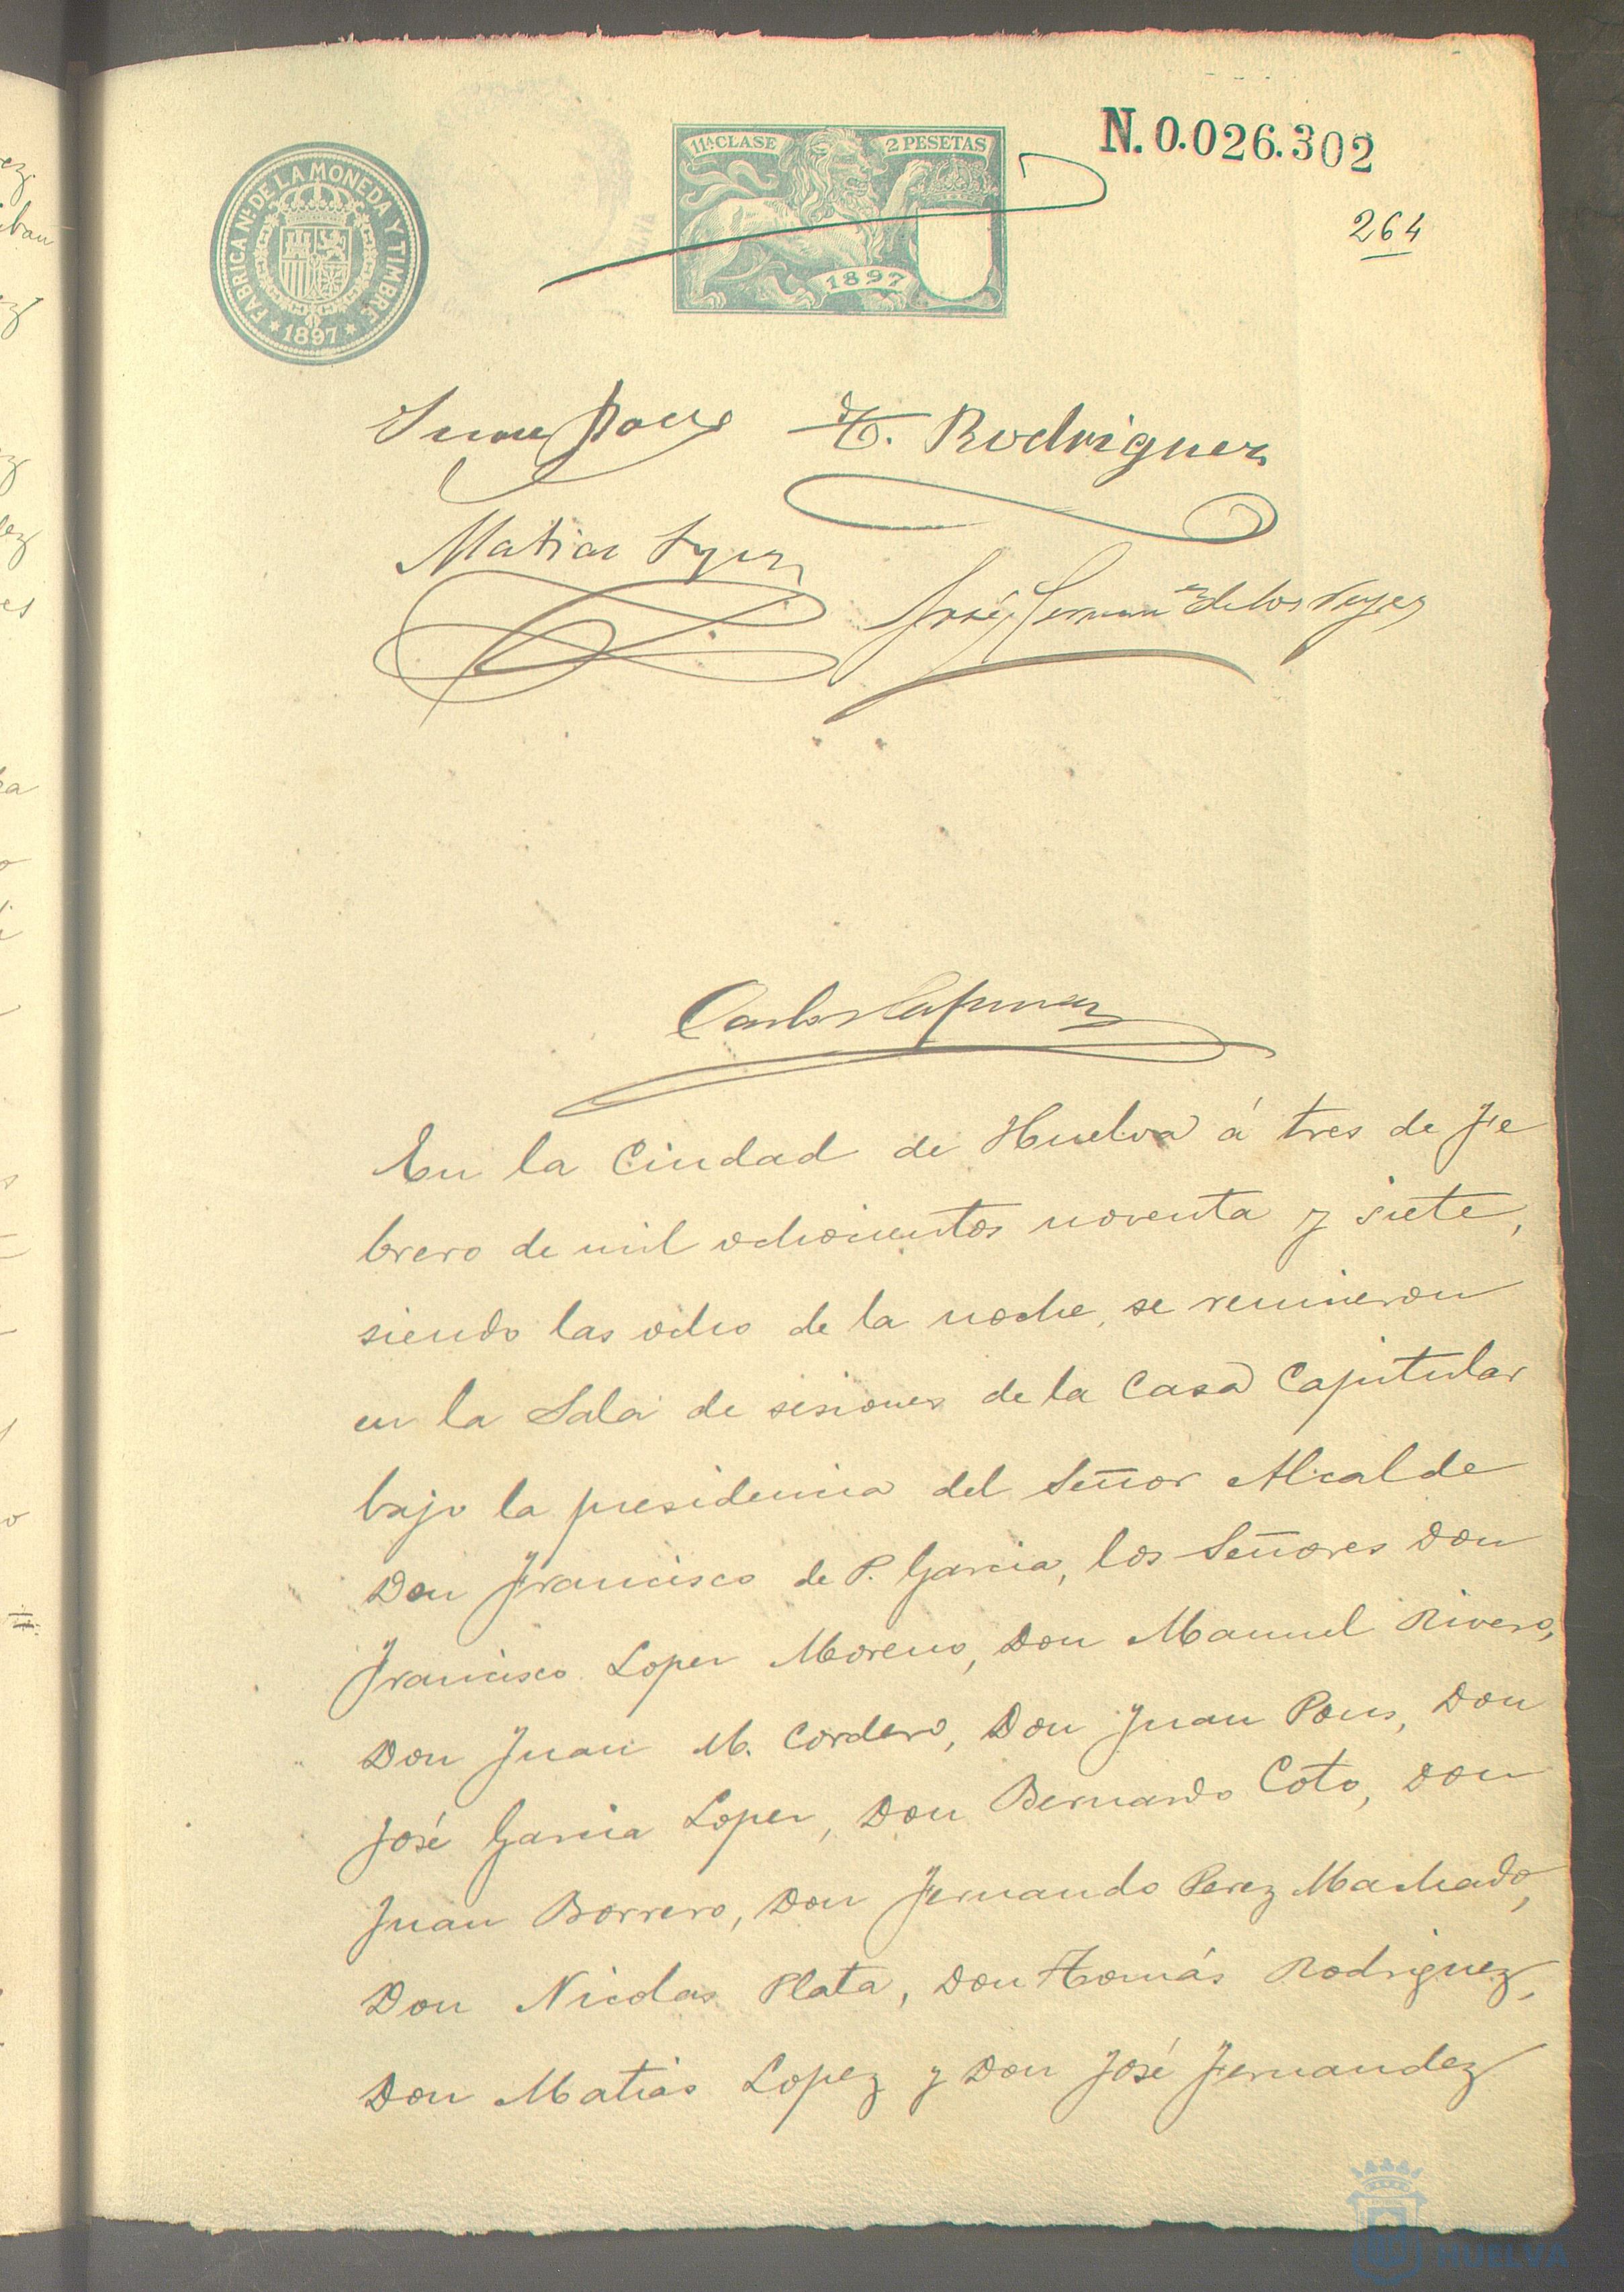 FABRICA NL. DE LA MONEDA Y TIMBRE
* 1897 *
11ª CLASE 2 PESETAS
1897
N. 0.026.302
264
Juan Pons T. Rodriguez
Matias Lopez
José Fernandez de los Reyes
Carlos
En la Ciudad de Huelva á tres de Fe
brero de mil ochocientos noventa y siete,
siendo las ocho de la noche, se reunieron
en la Sala de sesiones de la Casa Capitular
bajo la presidencia del Señor Alcalde
Don Francisco de P. Garcia, los Señores Don
Francisco Lopez Moreno, Don Manuel Rivero,
Don Juan M. Cordero, Don Juan Pons, Don
José Garcia Lopez, Don Bernardo Coto, Don
Juan Borrero, Don Fernando Perez Machado,
Don Nicolas Plata, Don Tomás Rodriguez,
Don Matias Lopez y Don José Fernandez
HUELVA